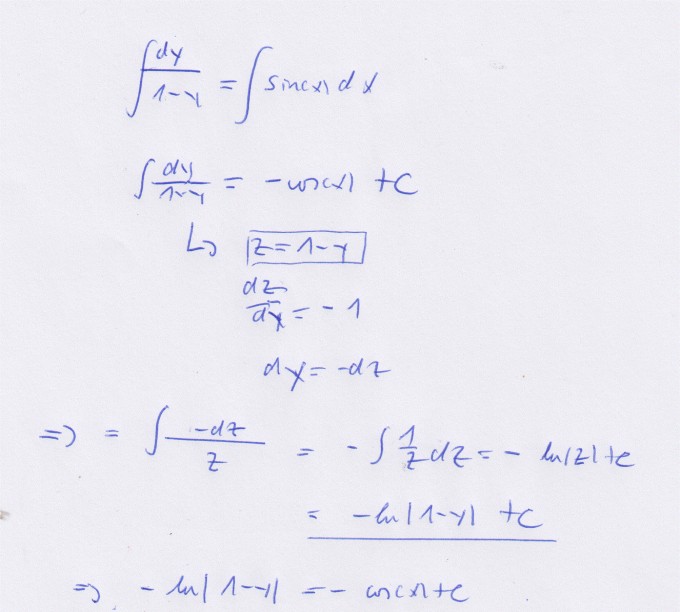 ∫ dy/(1-y) = ∫ sin(x) dx
∫ dy/(1-y) = -cos(x) + C
↳ z = 1-y
dz/dy = -1
dy = -dz
=> = ∫ -dz/z = -∫ 1/z dz = -ln|z| + C
= -ln|1-y| + C
=> -ln|1-y| = -cos(x) + C